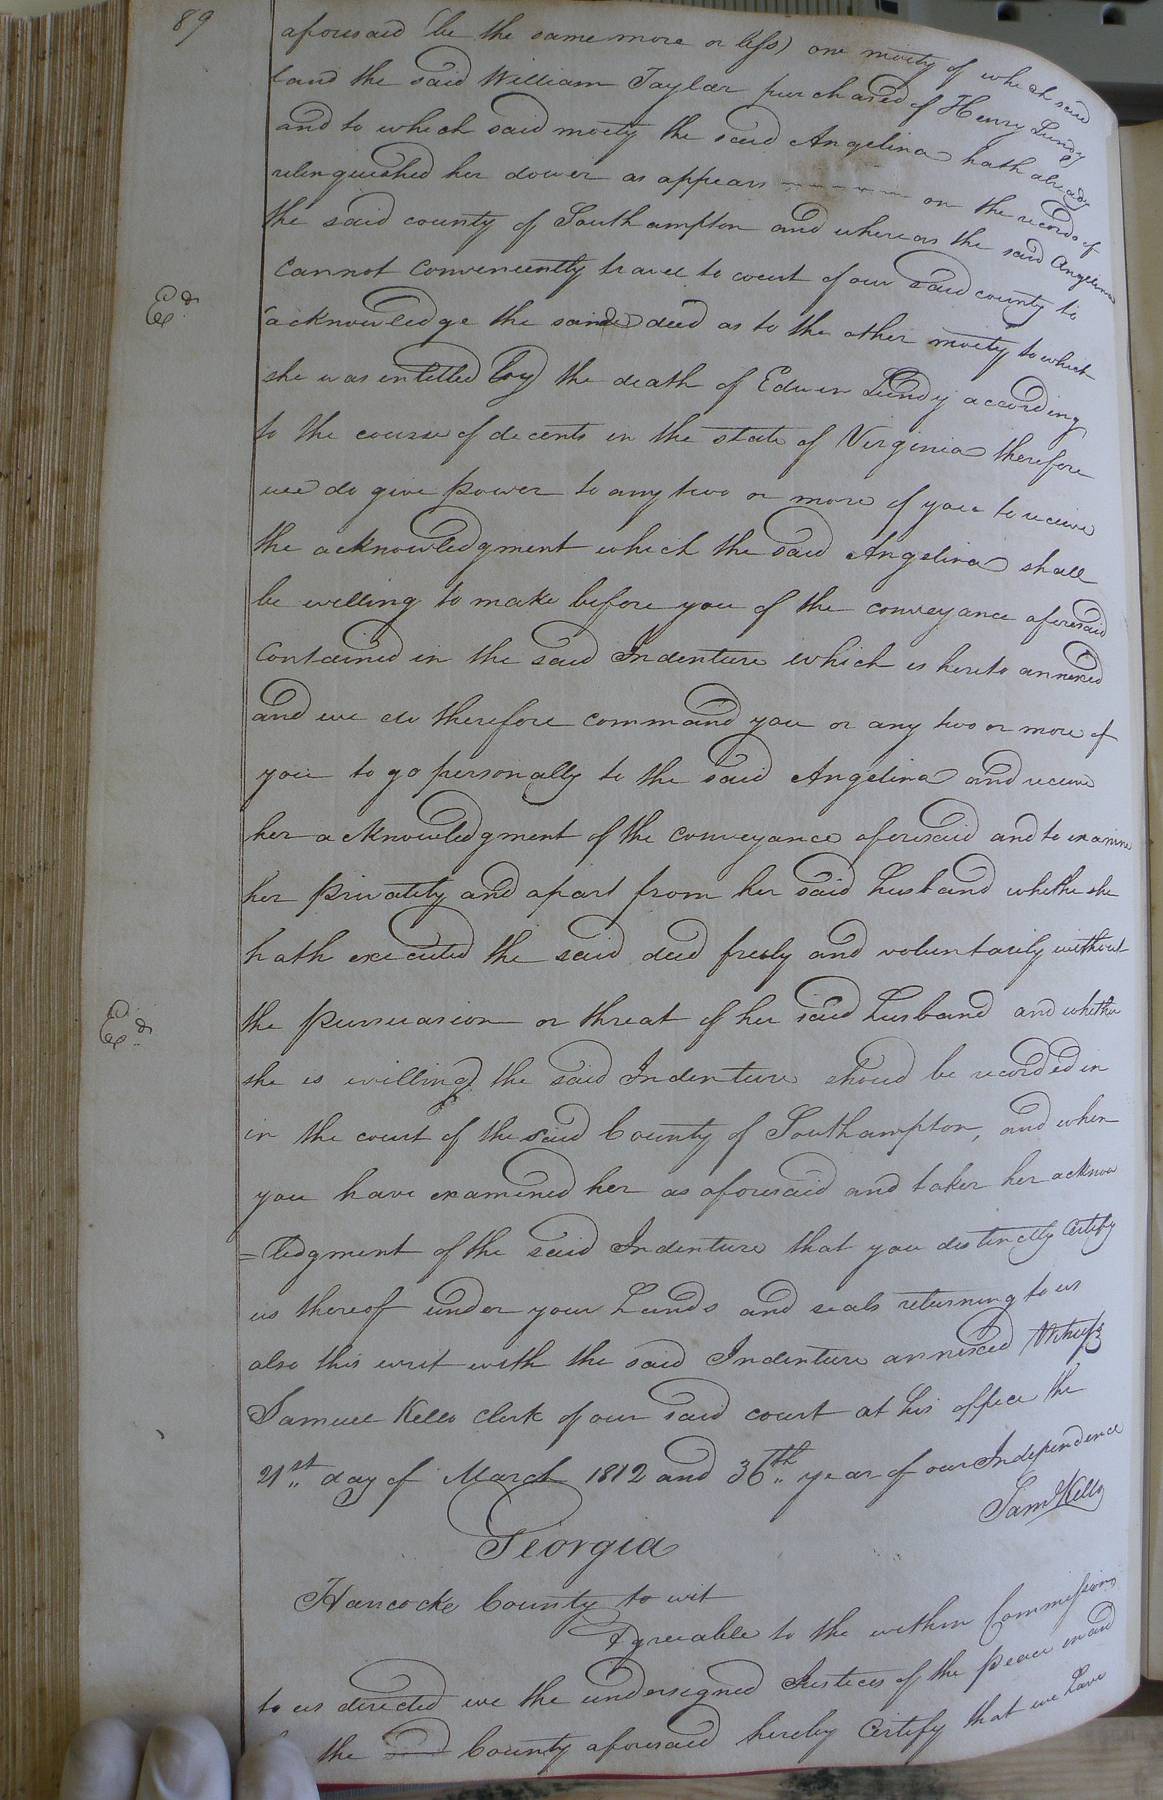 89
aforesaid (be the same more or less) one moiety of which said
land the said William Taylor purchased of Henry Lundy
and to which said moiety the said Angelina hath already
relinquished her dower as appears ------- on the records of
the said county of Southampton and whereas the said Angelina
cannot conveniently travel to court of our said county to
Exd.
acknowledge the said deed as to the other moiety to which
she was entitled by the death of Edwin Lundy according
to the course of decents in the state of Virginia therefore
we do give power to any two or more of you to receive
the acknowledgment which the said Angelina shall
be willing to make before you of the conveyance aforesaid
contained in the said Indenture which is hereto annexed
and we do therefore command you or any two or more of
you to go personally to the said Angelina and receive
her acknowledgment of the conveyance aforesaid and to examine
her privatity and apart from her said husband whethe she
hath executed the said deed freely and voluntarily without
Exd.
the persuasion or threat of her said husband and whether
she is willing the said Indenture shoud be recorded in
in the court of the said County of Southampton, and when
you have examined her as aforesaid and taken her acknow
=ledgment of the said Indenture that you distinctly certify
us thereof under your hands and seals returning to us
also this writ with the said Indenture annexed Witness
Samuel Kello clerk of our said court at his office the
21st day of March 1812 and 36th year of our Independence
Saml Kello
Georgia
Hancocke County to wit
Agreeable to the within Commission
to us directed we the undersigned Justices of the peace in and
the County aforesaid hereby Certify that we have